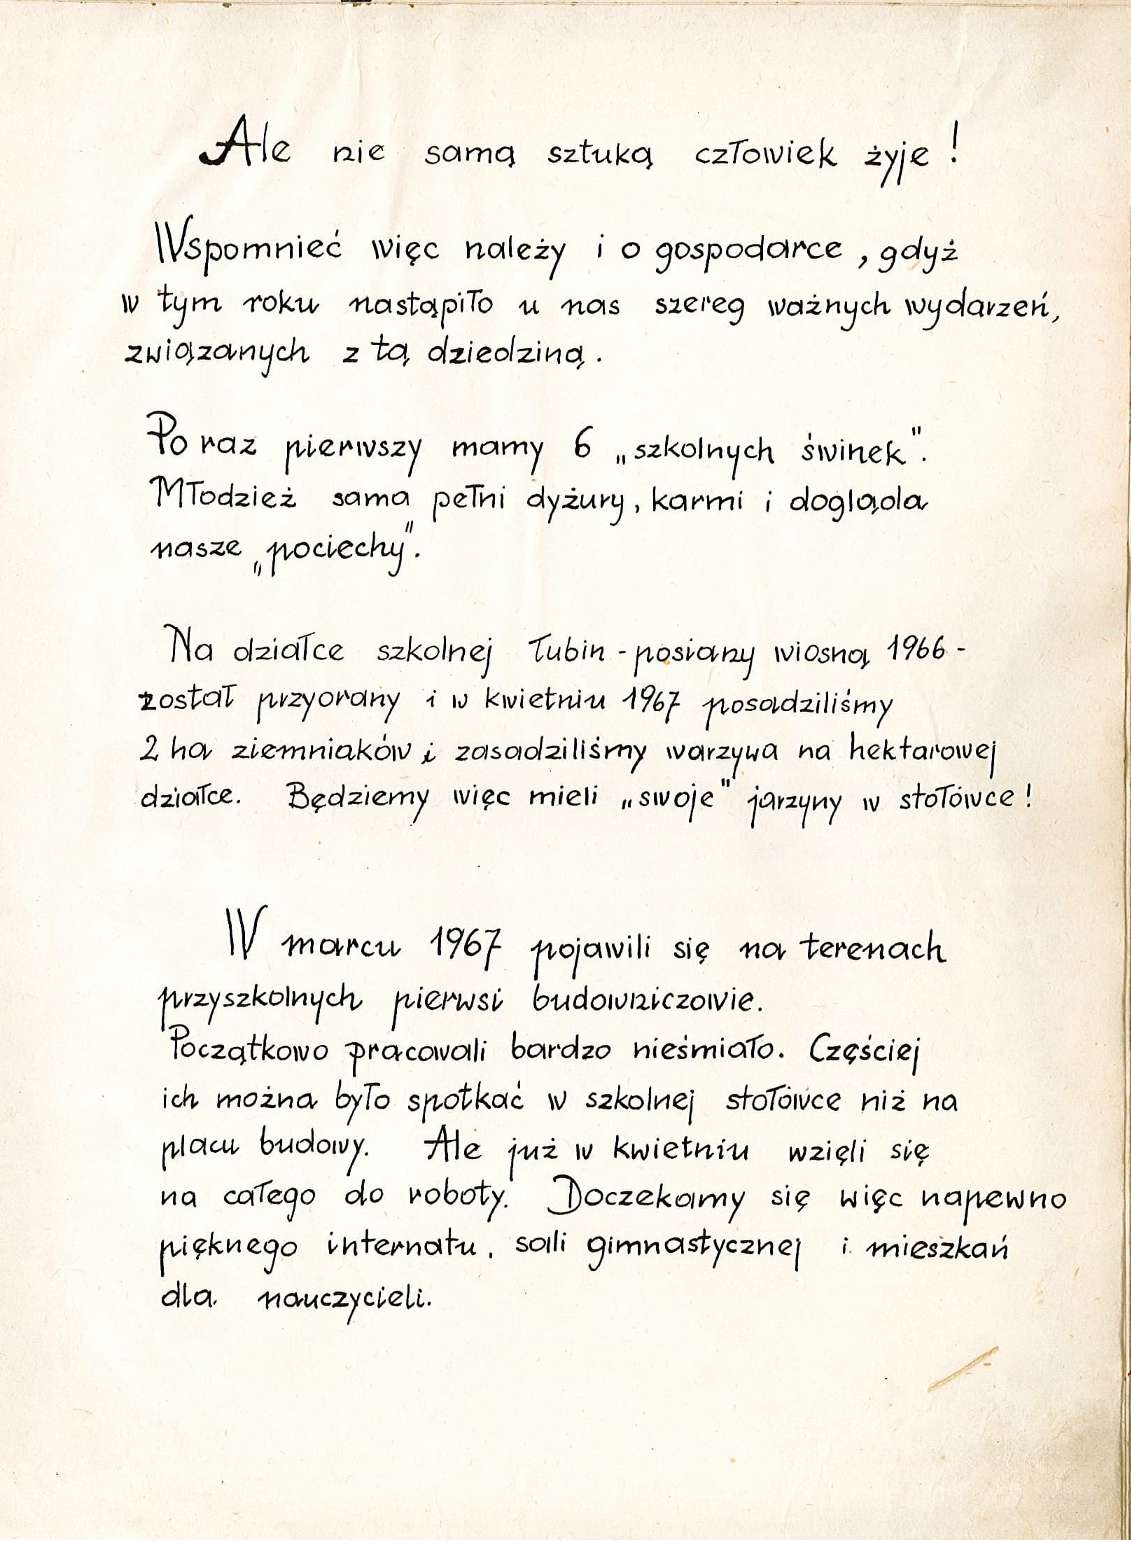 Ale nie samą sztuką człowiek żyje !
Wspomnieć więc należy i o gospodarce , gdyż
w tym roku nastąpiło u nas szereg ważnych wydarzeń,
związanych z tą dziedziną .
Po raz pierwszy mamy 6 „szkolnych świnek".
Młodzież sama pełni dyżury, karmi i dogląda
nasze „pociechy".
Na działce szkolnej łubin - posiany wiosną 1966 -
został przyorany i w kwietniu 1967 posadziliśmy
2 ha ziemniaków i zasadziliśmy warzywa na hektarowej
działce. Będziemy więc mieli „swoje" jarzyny w stołówce !
W marcu 1967 pojawili się na terenach
przyszkolnych pierwsi budowniczowie.
Początkowo pracowali bardzo nieśmiało. Częściej
ich można było spotkać w szkolnej stołówce niż na
placu budowy. Ale już w kwietniu wzięli się
na całego do roboty. Doczekamy się więc napewno
pięknego internatu, sali gimnastycznej i mieszkań
dla nauczycieli.